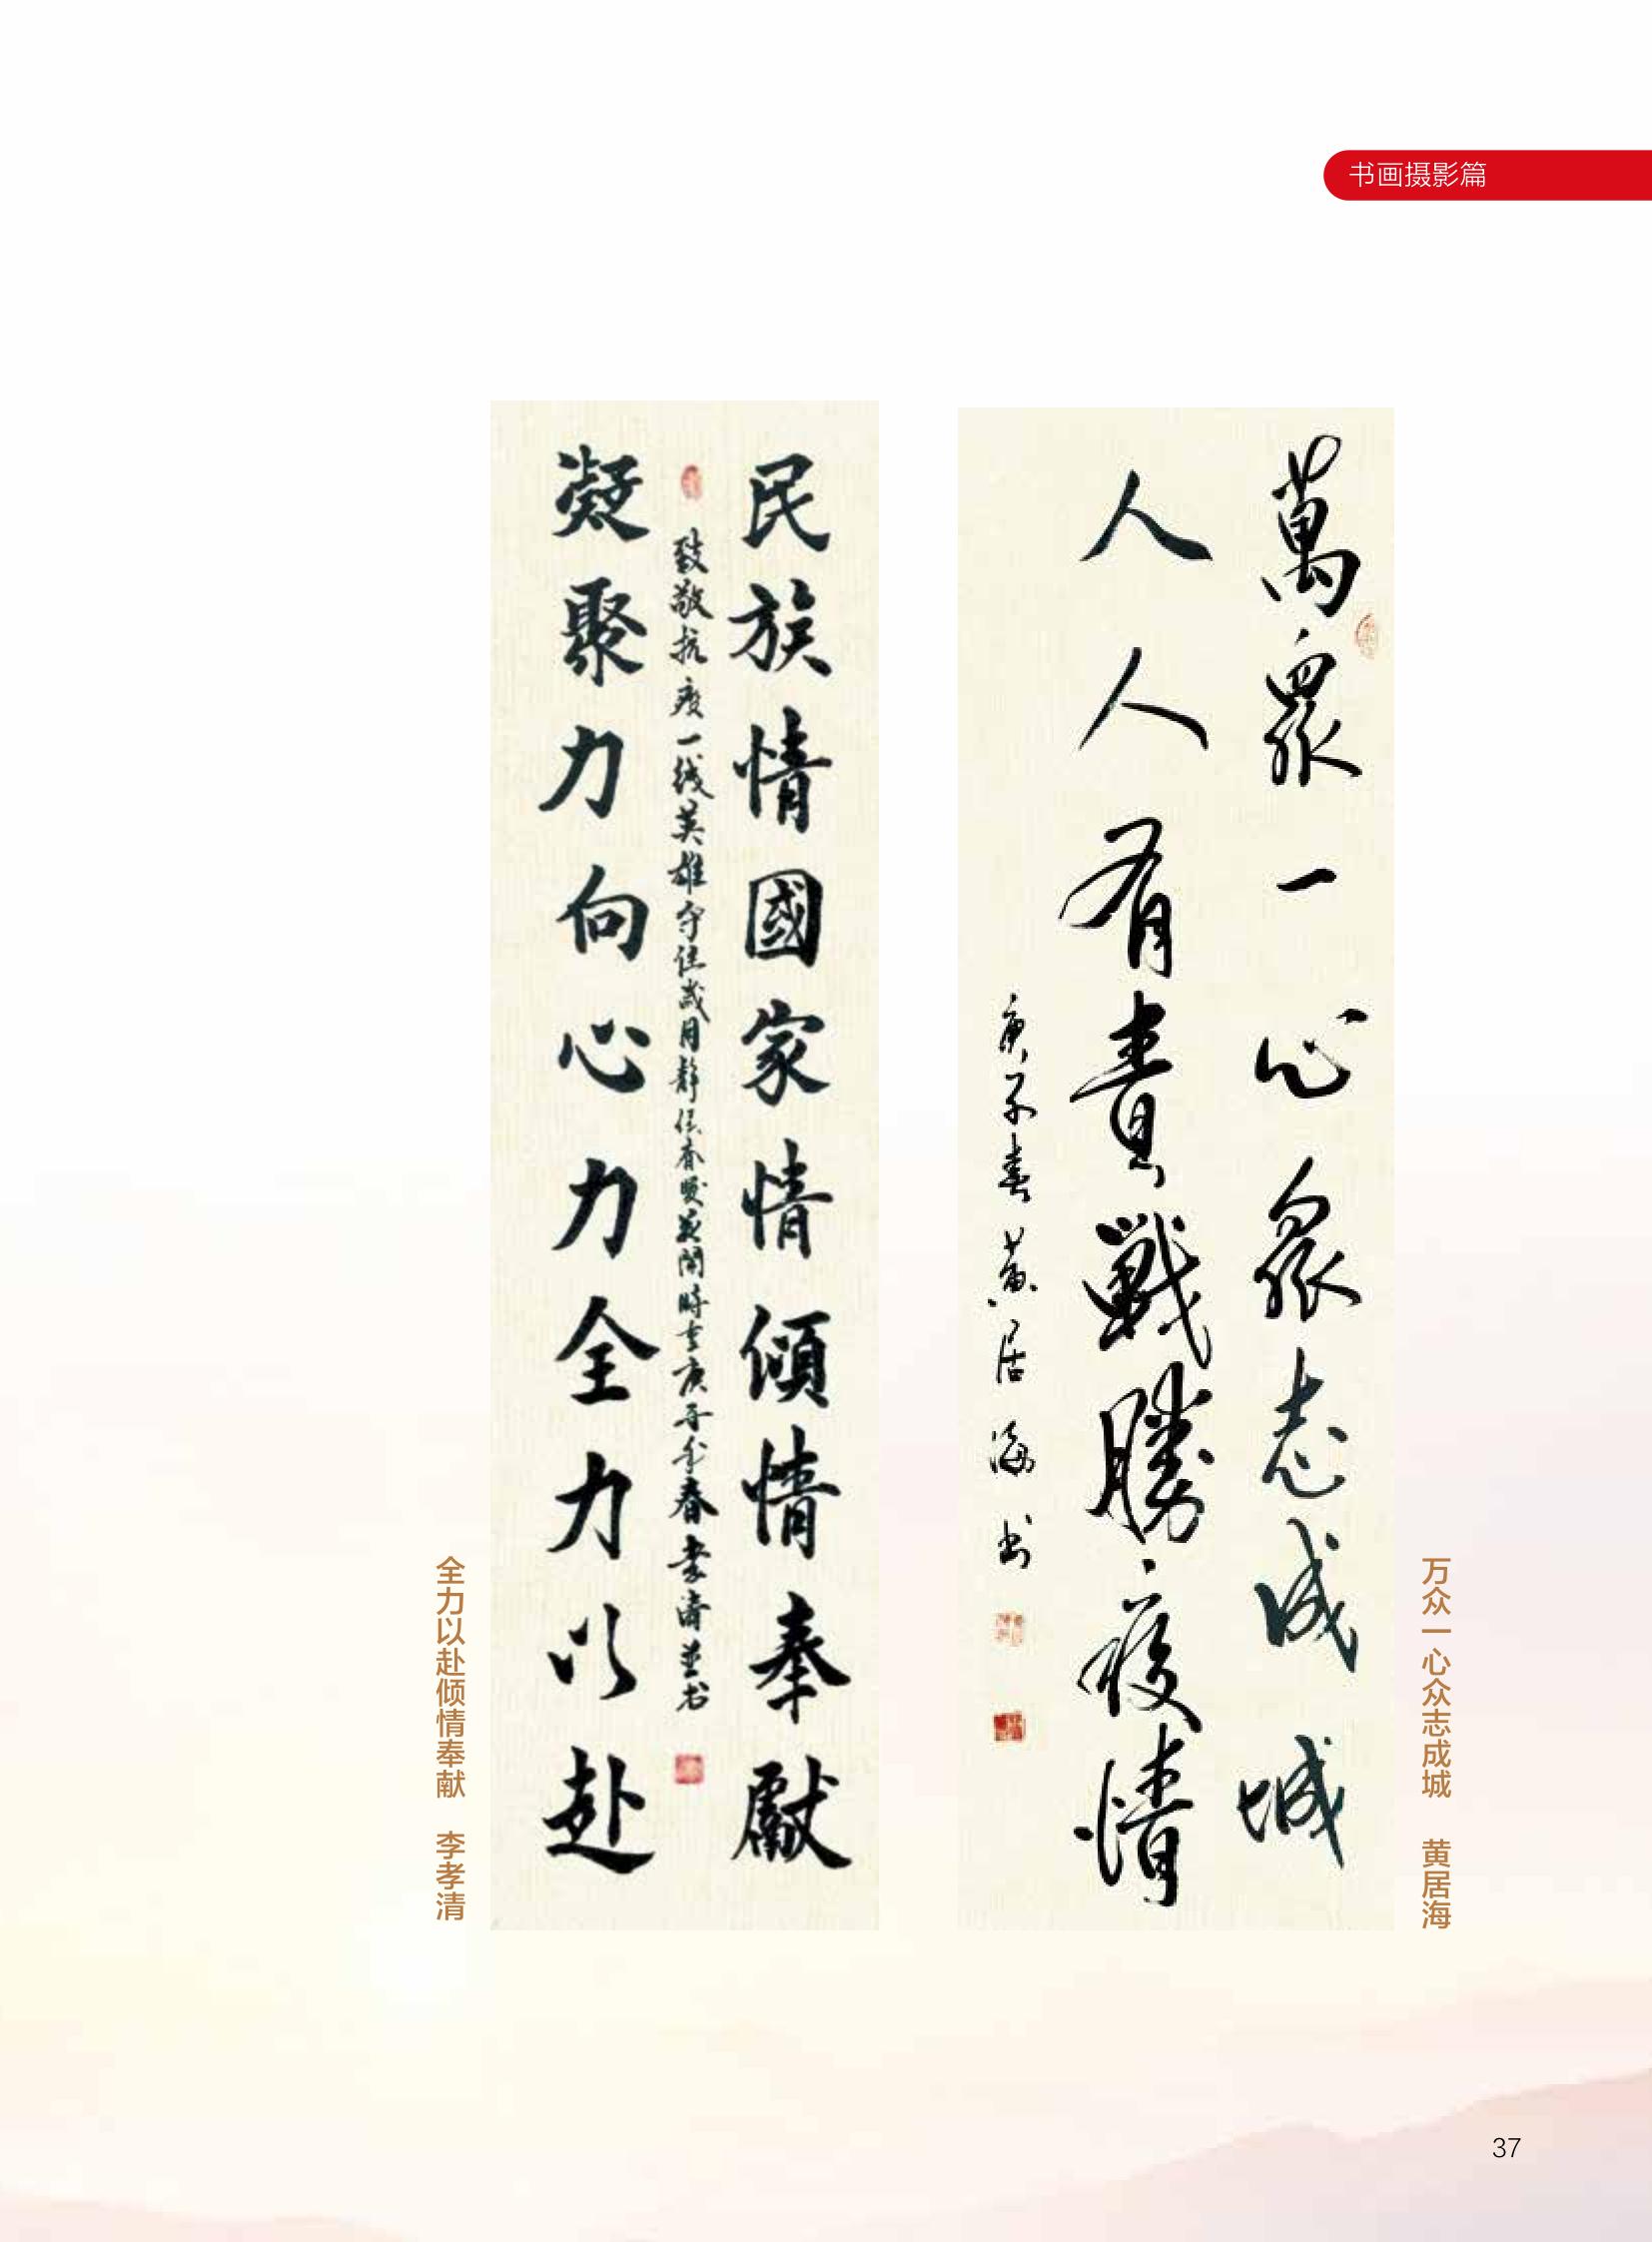 书画摄影篇
萬眾一心眾志成城
人人有責戰勝疫情
庚子春黄居海书
万众一心众志成城 黄居海
民族情國家情傾情奉獻
致敬抗疫一线英雄守住歲月静候春暖花開時在庚子年春孝清並书
凝聚力向心力全力以赴
全力以赴倾情奉献 李孝清
37